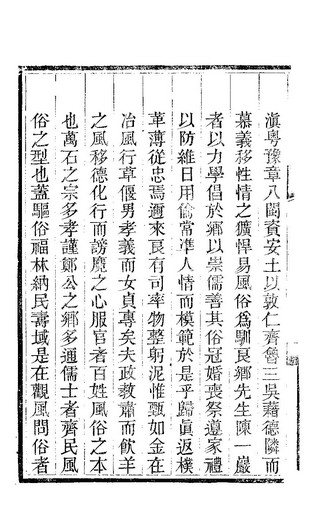 滇粵豫章八閩賓安土以敦仁齊魯三吳藉德隣而
慕義移性情之獷悍易風俗爲馴良鄉先生陳一巖
者以力學倡於鄉以崇儒善其俗冠婚喪祭遵家禮
以防維日用倫常準人情而模範於是乎歸眞返樸
革薄從忠焉邇來良有司率物整躬泥惟甄如金在
冶風行草偃男孝義而女貞專矣夫政教肅而飮羊
之風移德化行而謗麛之心服官者百姓風俗之本
也萬石之宗多孝謹鄭公之鄉多通儒士者齊民風
俗之型也蓋驅俗福林納民壽域是在觀風問俗者